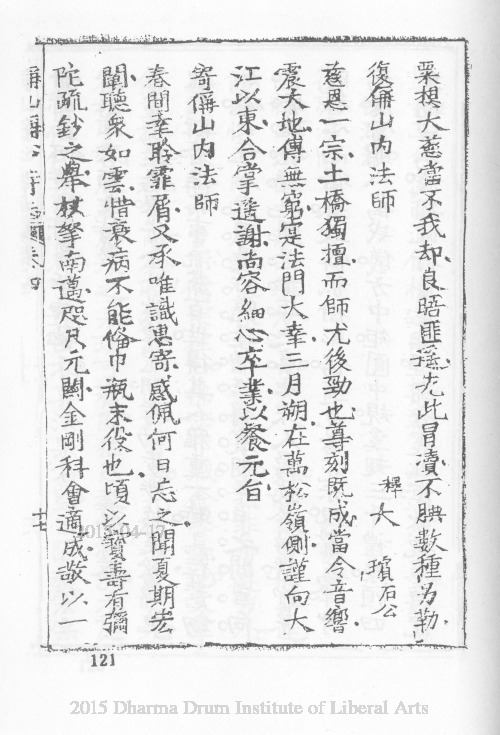 粟模大慈當不我却良晤匪遙先此冒瀆不腆數種另勒
復䨱山内法師
釋大 璸石公
慈恩一宗土橋獨擅而師尤後勁也尊刻既成當令音響
震天地傳無窮寔法門大幸三月朔在萬松嶺側謹向大
江以東合掌遙謝尚容細心卒業以餐元旨
寄山内法師
春間幸聆霏屑又承唯識惠寄感佩何日忘之聞夏期宏
闡聽衆如雲惜衰病不能偹巾瓶末役也頃以寶壽有彌
陀疏鈔之舉棋筆南邁咫尺元關金剛科會適成敬以一
山 卷四
十七
2015-04-17
121
2015 Dharma Drum Institute of Liberal Arts